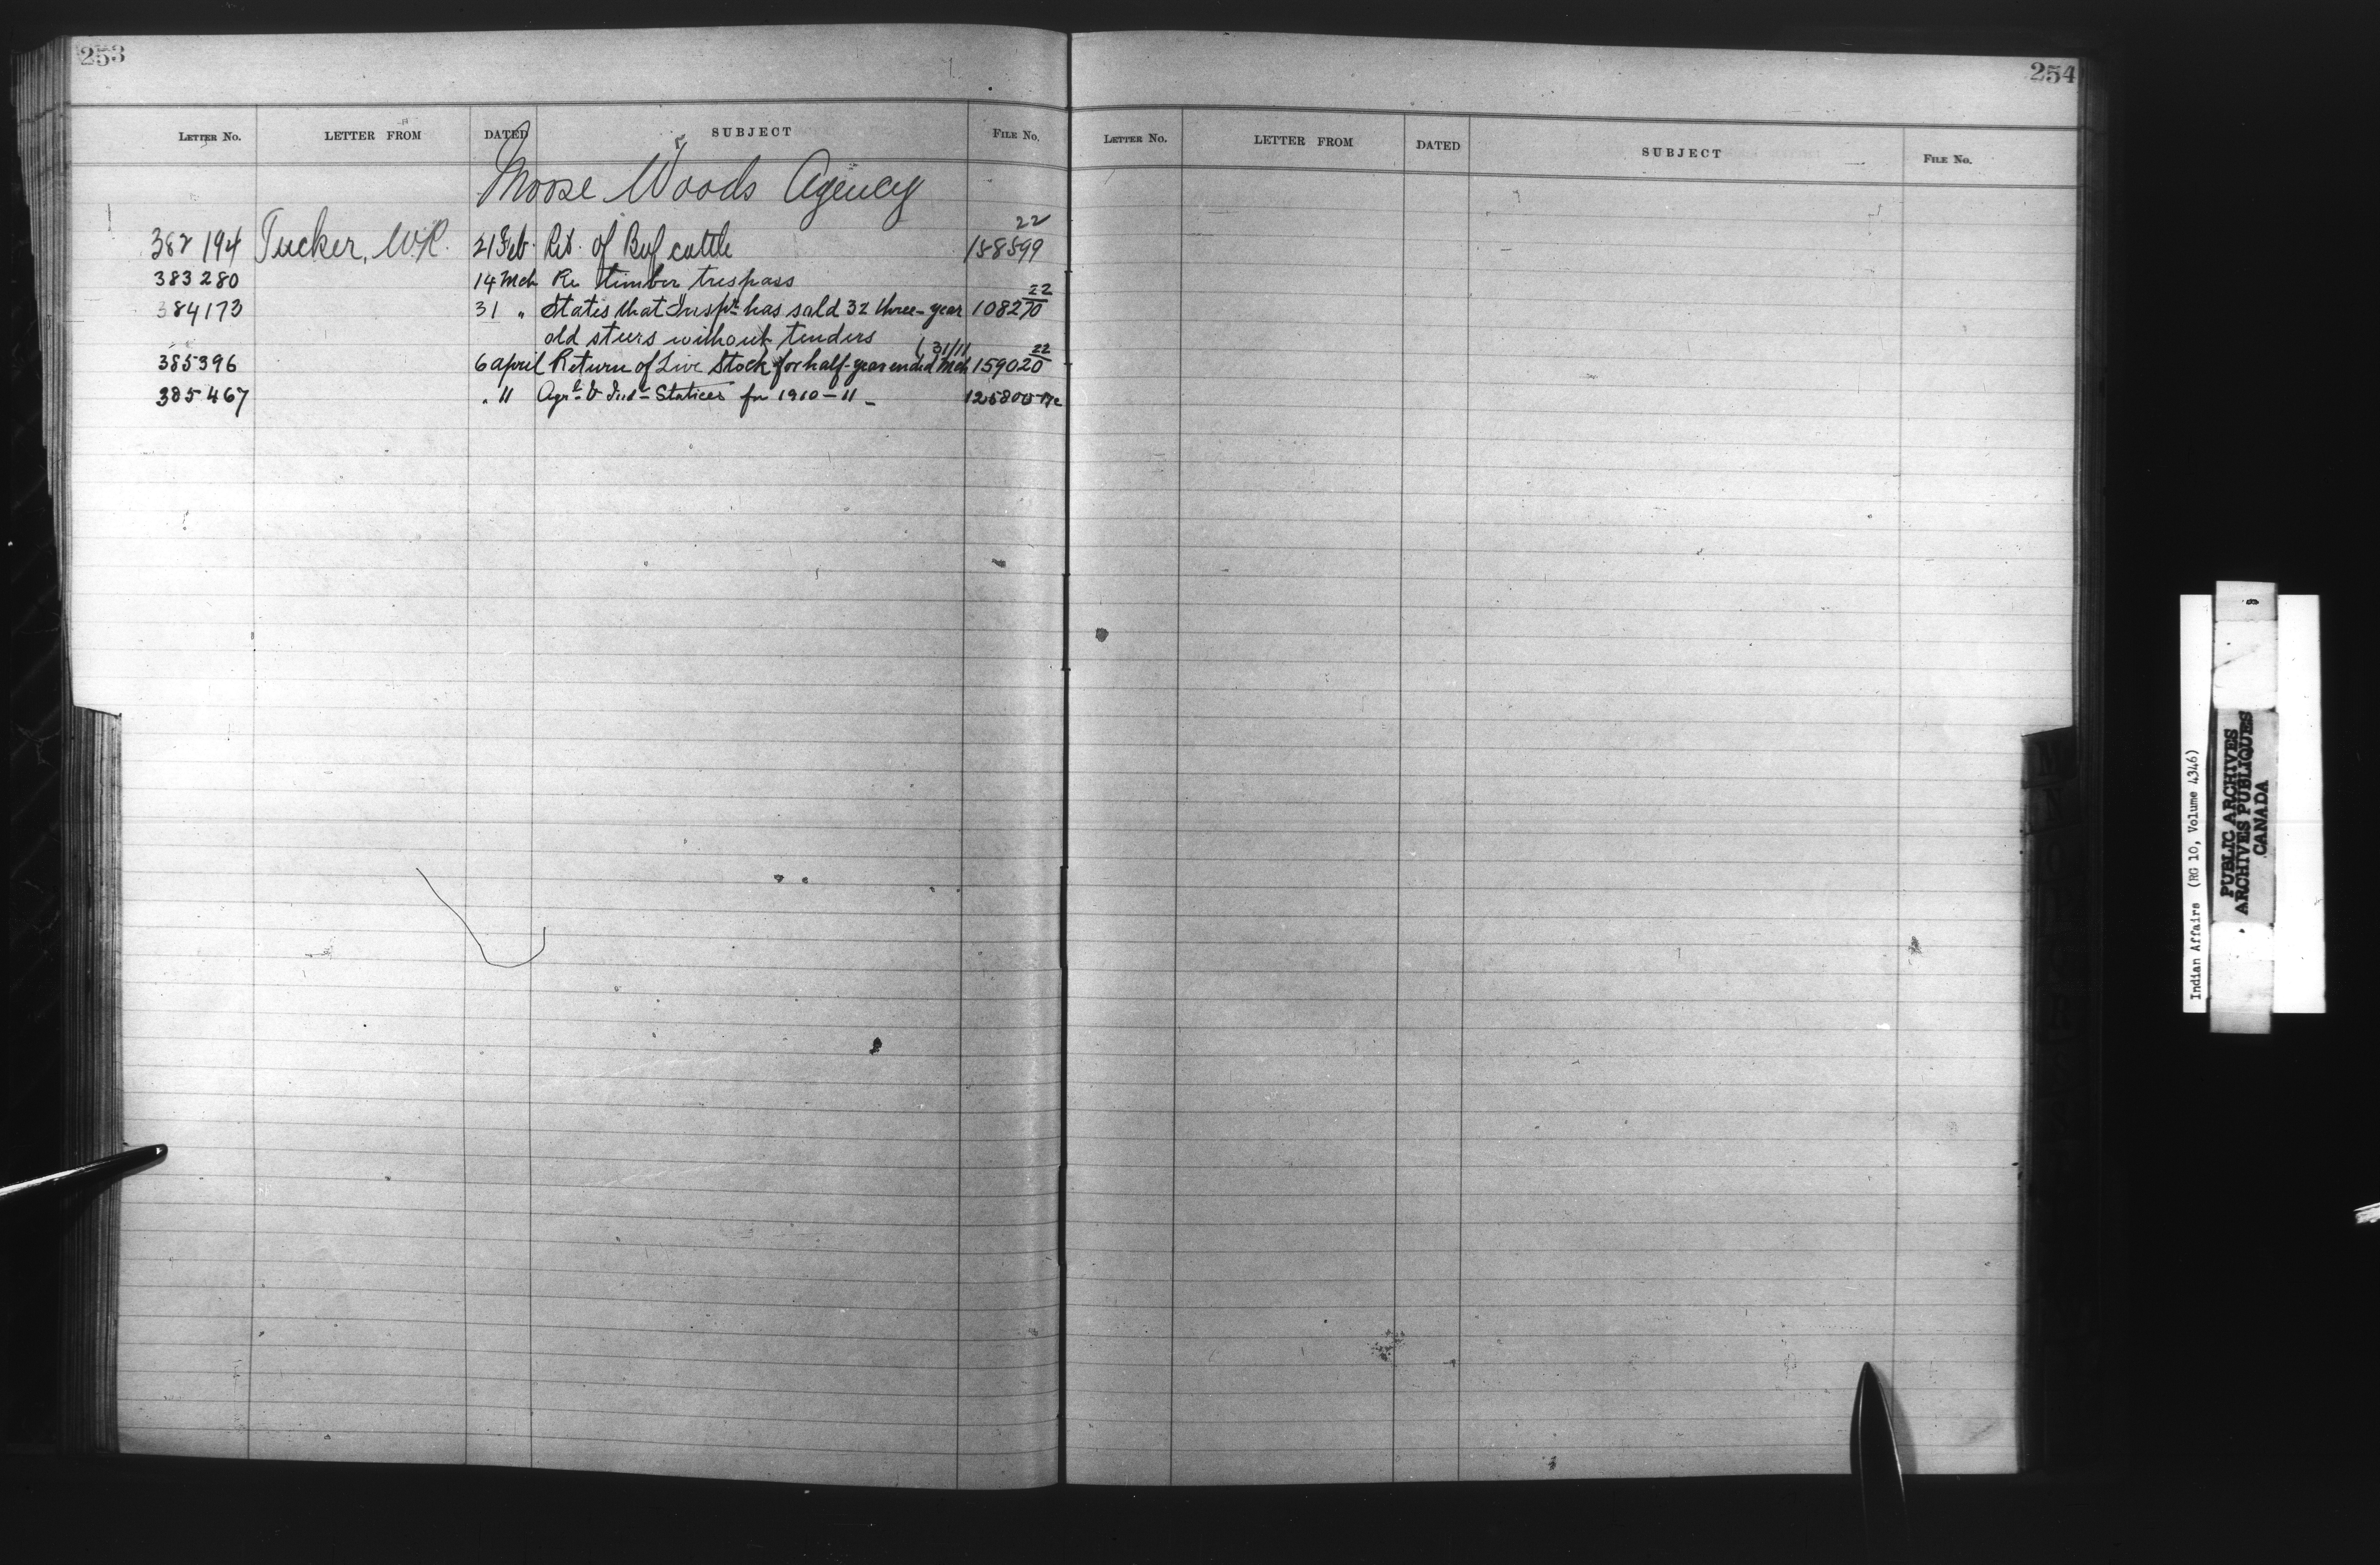 253
LETTER No. LETTER FROM DATED SUBJECT FILE No.
Moose Woods Agency
382194 Tucker, W.R. 21 Feb. Ret. of Beef cattle 158599 22
383280 14 Mch Re timber trespass
384173 31 " States that Inspr. has sold 32 three-year 108270 22
old steers without tenders
385396 6 April Return of Live Stock for half-year ended Mch 31/11 159020 22
385467 " 11 Agrl & Indl Statices for 1910-11
254
LETTER No. LETTER FROM DATED SUBJECT FILE No.
Indian Affairs (RG 10, Volume 4346)
PUBLIC ARCHIVES
ARCHIVES PUBLIQUES
CANADA